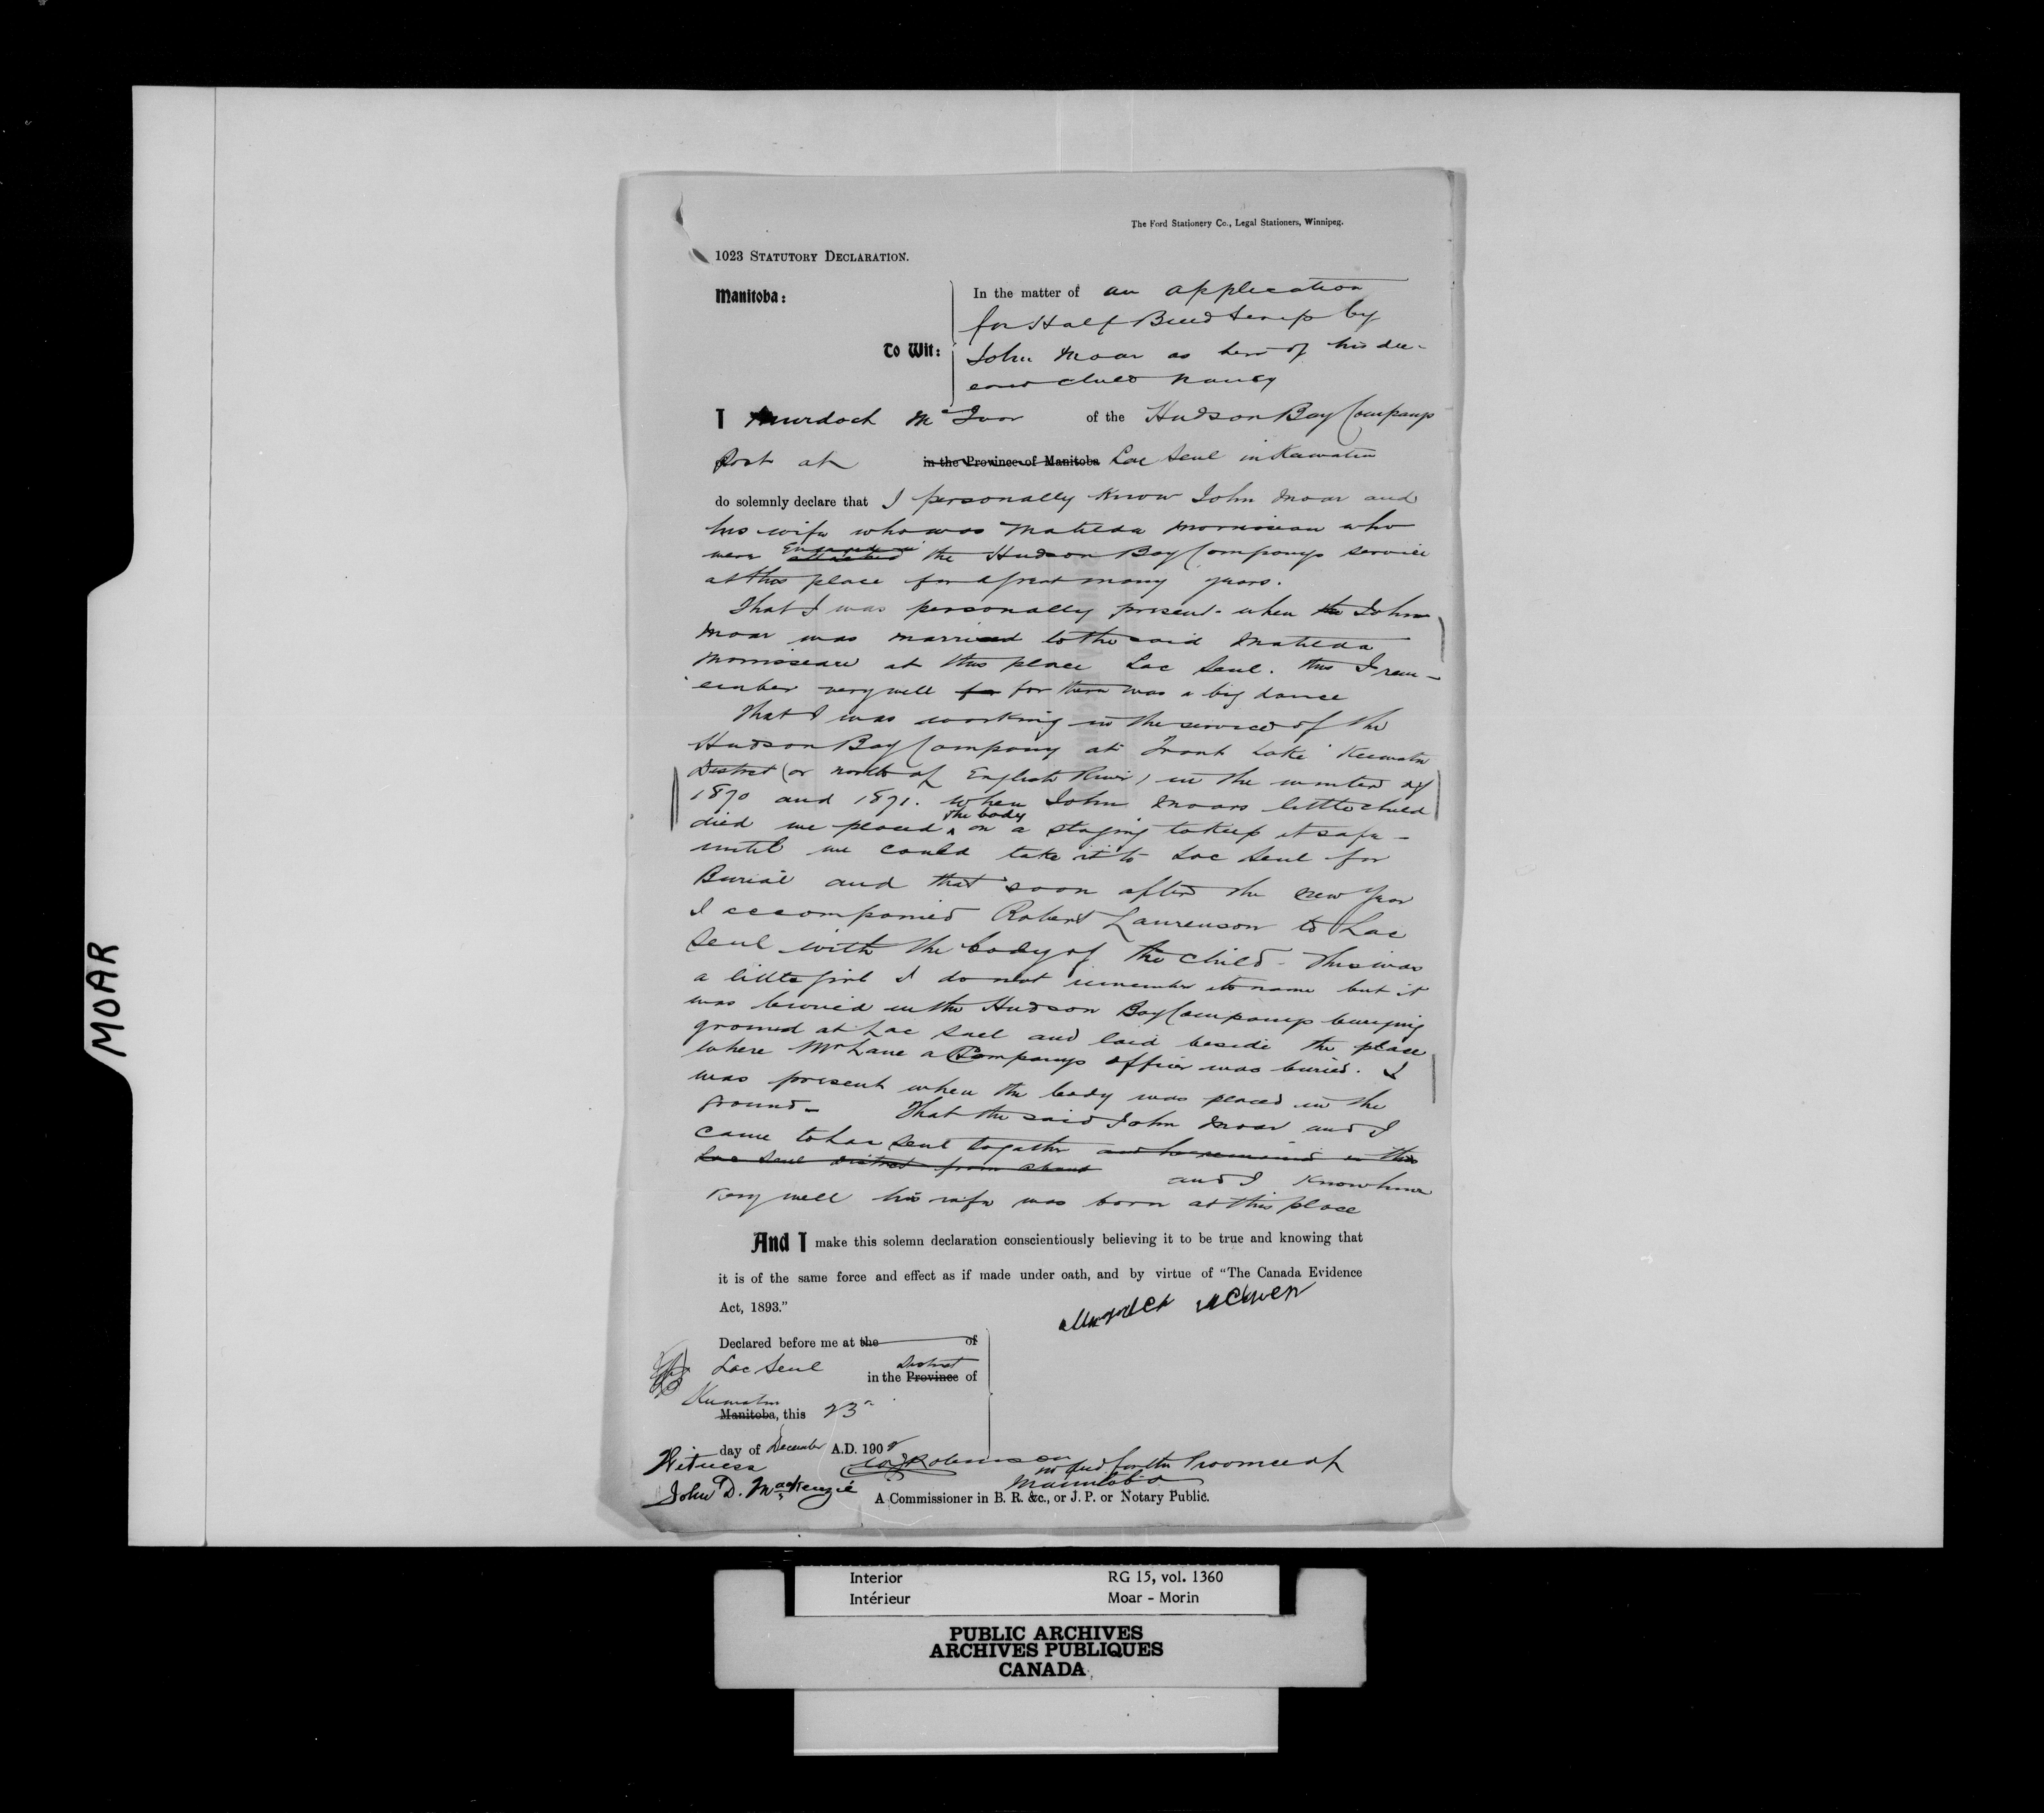 The Ford Stationery Co., Legal Stationers, Winnipeg.
1023 STATUTORY DECLARATION.
Manitoba:
To Wit:
In the matter of an application
for Half Breed Scrip by
John Moar as heir of his de-
ceased child Nancy
I Murdoch McIvor of the Hudson Bay Companys
Post at in the Province of Manitoba Lac Seul in Keewatin
do solemnly declare that I personally know John Moar and
his wife who was Matilda Morriseau who
were attached Engaged in the Hudson Bay Companys service
at this place for a great many years.
That I was personally present when the John
Moar was married to the said Matilda
Morriseau at this place Lac Seul. this I rem-
ember very well for for there was a big dance
That I was working in the service of the
Hudson Bay Company at Trout Lake Keewatin
District (or north of English River) in the winter of
1870 and 1871. when John Moars little child
died we placed the body on a staging to keep it safe
until we could take it to Lac Seul for
Burial and that soon after the new year
I accompanied Robert Laurenson to Lac
Seul with the body of the child. This was
a little girl I do not remember its name but it
was buried in the Hudson Bay Companys burying
ground at Lac Suel and laid beside the place
where Mr Lane a Companys officer was buried. I
was present when the body was placed in the
ground. That the said John Moar and I
came to Lac Seul together and he remained in this
Lac Seul District from about
and I know him
very well his wife was born at this place
And I make this solemn declaration conscientiously believing it to be true and knowing that
it is of the same force and effect as if made under oath, and by virtue of "The Canada Evidence
Act, 1893."
Declared before me at the of
Lac Seul in the Province District of
Keewatin
Manitoba, this 23
day of December A.D. 190
Witness
John D. MacKenzie
Robinson
in and for the Province of
Manitoba
A Commissioner in B. R. &c., or J. P. or Notary Public.
MOAR
Interior RG 15, vol. 1360
Intérieur Moar - Morin
PUBLIC ARCHIVES
ARCHIVES PUBLIQUES
CANADA